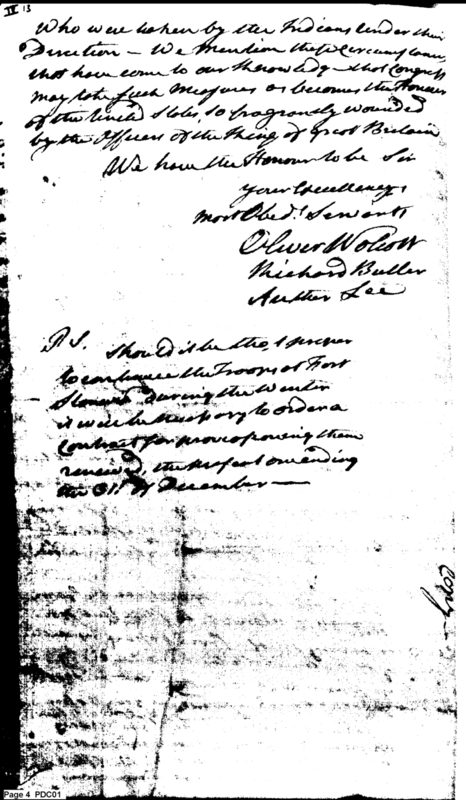 IV 13
Who were taken by the Indians under their
Direction – We mention these Circumstances
that have come to our Knowledge that Congress
may take such Measures as becomes the Honour
of the United States, so flagrantly wounded
by the Officers of the King of Great Britain
We have the Honour to be Sir
Your Excellency's
most Obedt Servants
Oliver Wolcott
Richard Butler
Arthur Lee
P.S. Should it be thot proper
to continue the Troops at Fort
during the Winter
it will be necessary to order a
Contract for
renewed, the present one ending
the 31st of December —
Page 4 PDC01